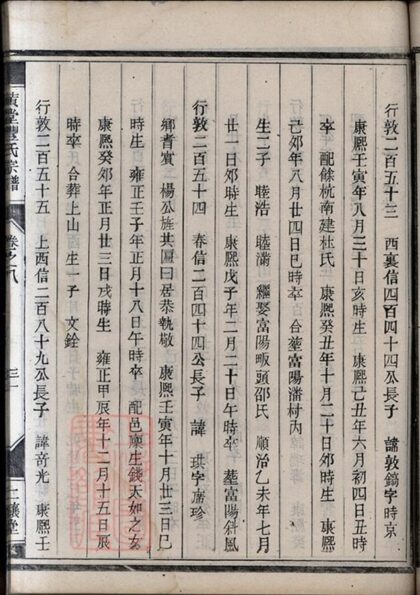 行敦二百五十三 西裏信四百四十四公長子 諱敦鎬字時京
康熙壬寅年八月三十日亥時生 康熙己丑年六月初四日丑時
卒 配餘杭南建杜氏 康熙癸丑年十月二十日卯時生 康熙
己卯年八月廿四日巳時卒 合塟富陽潘村內
生二子 睦浩 睦潘 繼娶富陽畈頭邵氏 順治乙未年七月
廿一日卯時生 康熙戊子年二月二十日午時卒 塟富陽斜風
行敦二百五十四 春信二百四十四公長子 諱 琪字廣珍
鄉耆賓 楊公旌其匾曰居恭執敬 康熙壬寅年十月廿三日巳
時生 雍正壬子年正月十八日午時卒 配邑廪生錢天如之女
康熙癸卯年正月廿三日戌時生 雍正甲辰年十二月十五日辰
時卒 合葬上山 生一子 文銓
行敦二百五十五 上西信二百八十九公長子 諱奇光 康熙壬
氏宗譜 卷之八 三 二穰堂